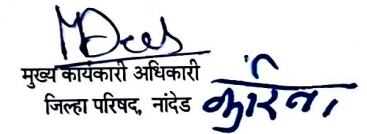 मुख्य कार्यकारी अधिकारी
जिल्हा परिषद, नांदेड
करिता